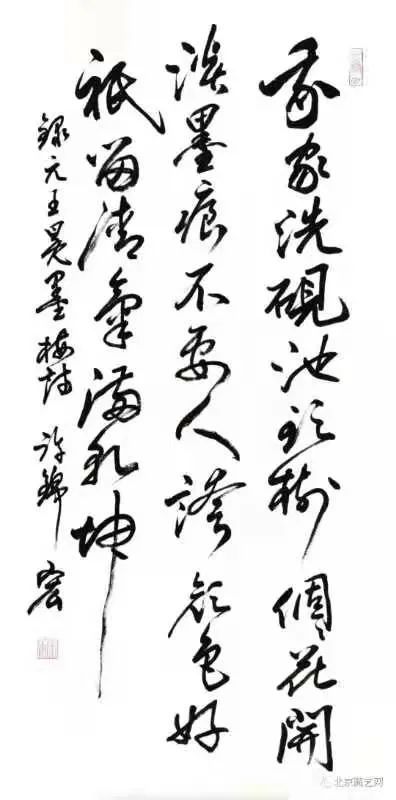 我家洗硯池頭樹個々花開
淡墨痕不要人誇顏色好
祇留清氣滿乾坤
錄元王冕墨梅詩 許錦
北京藏艺网